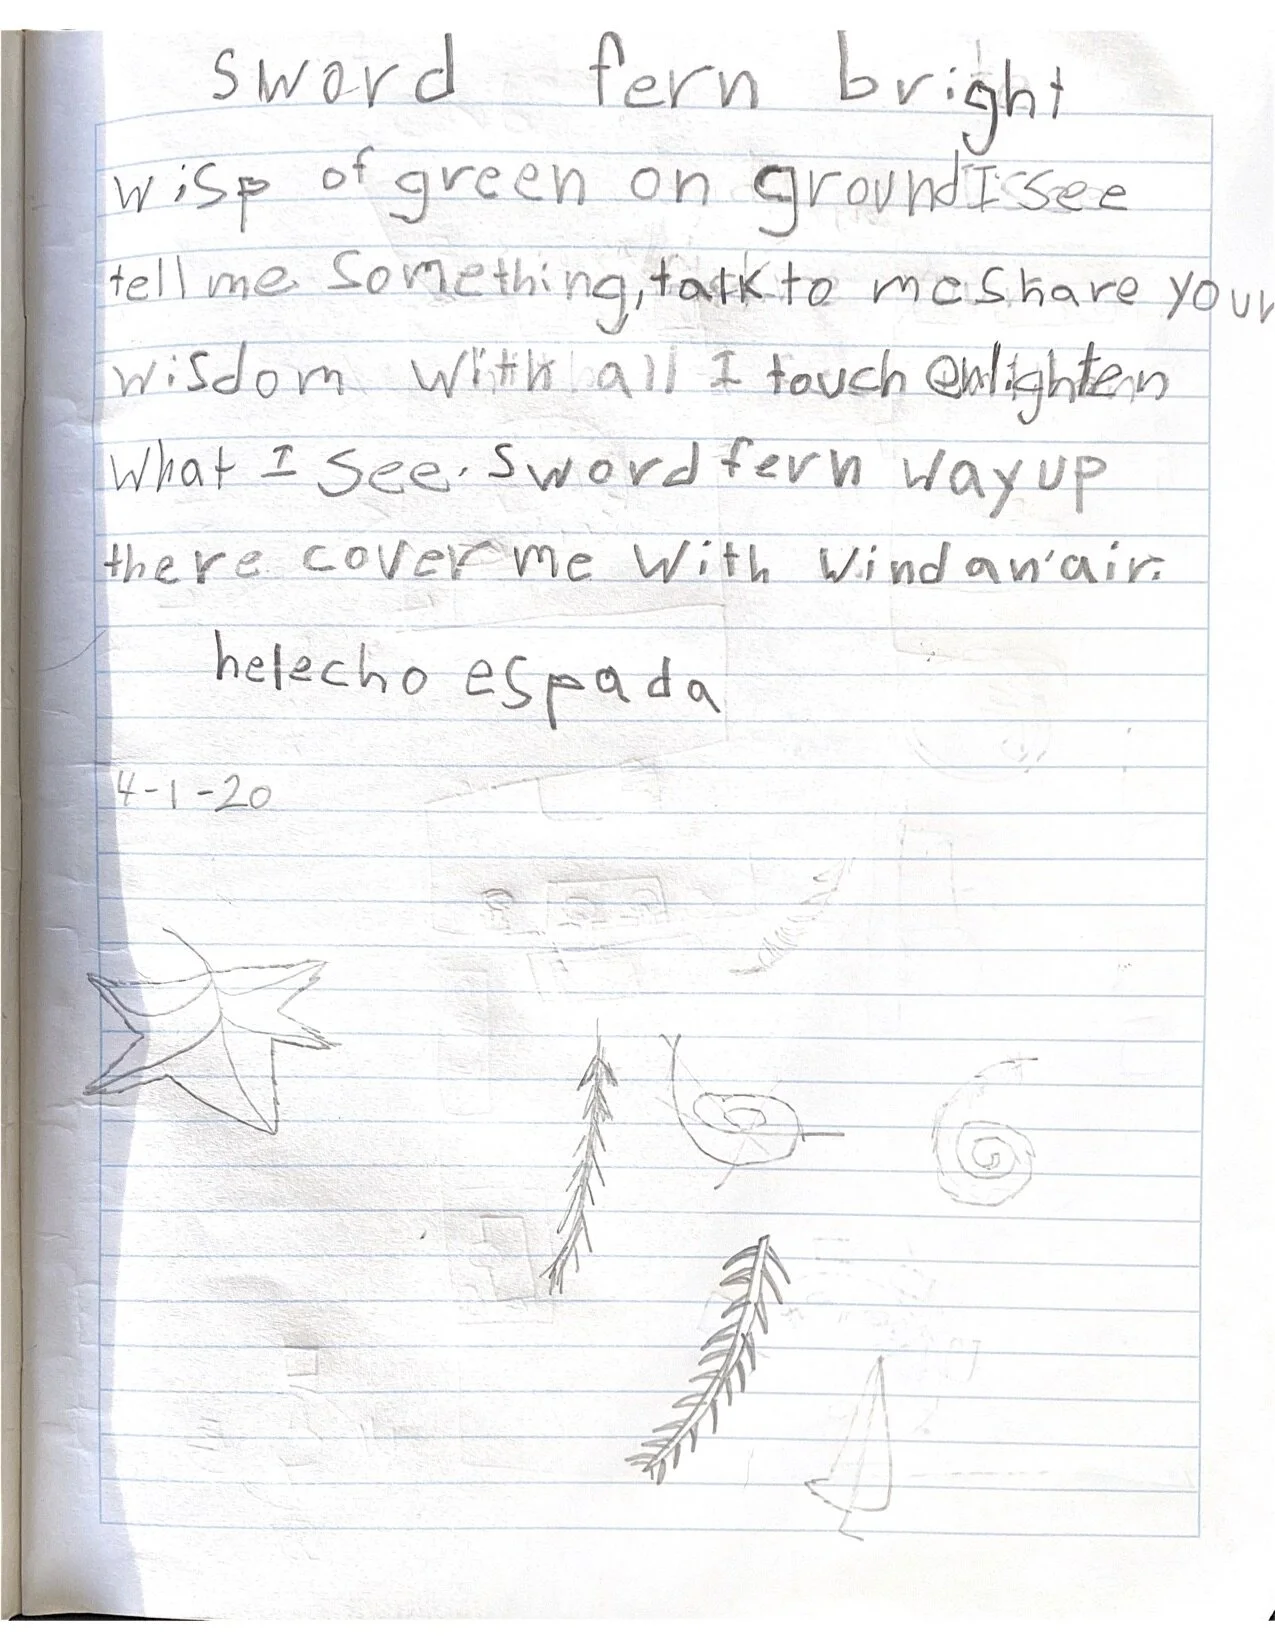 sword fern bright
wisp of green on ground I see
tell me something, talk to me share your
wisdom with all I touch enlighten
what I see. sword fern way up
there cover me with wind an' air.
helecho espada
4-1-20